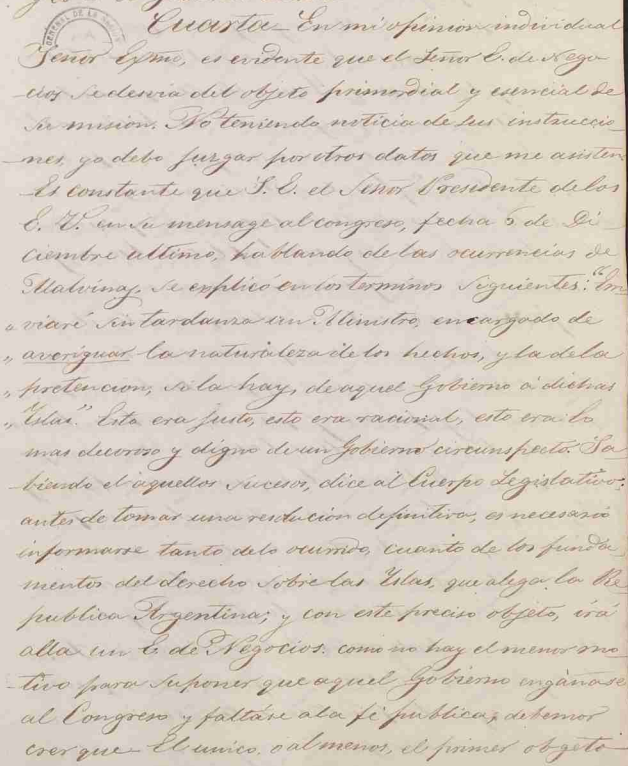 Cuarta - En mi opinion individual
Señor Exmo, es evidente que el Señor E. de Nego
cios se desvia del objeto primordial y esencial de
su mision. No teniendo noticia de sus instruccio-
-nes, yo debo juzgar por otros datos que me asisten.
Es constante que S. E. el Señor Presidente de los
E. U. en su mensage al congreso, fecha 6 de Di-
ciembre ultimo, hablando de las ocurrencias de
Malvinas, se explicó en los terminos siguientes: "En-
viaré sin tardanza un Ministro, encargado de
„ averiguar la naturaleza de los hechos, y la de la
„ pretencion, si la hay, de aquel Gobierno á dichas
„ Yslas." Esto era justo, esto era racional, esto era lo
mas decoroso y digno de un Gobierno circunspecto. Sa
biendo él aquellos sucesos, dice al Cuerpo Legislativo:
antes de tomar una resolucion definitiva, es necesario
informarse tanto de lo ocurrido, cuanto de los funda
mentos del derecho sobre las Yslas, que alega la Re
publica Argentina; y con este preciso objeto, irá
alla un E. de Negocios. como no hay el menor mo
-tivo para suponer que aquel Gobierno engañase
al Congreso y faltáse a la fé publica, debemos
creer que El unico. o al menos, el primer obgeto